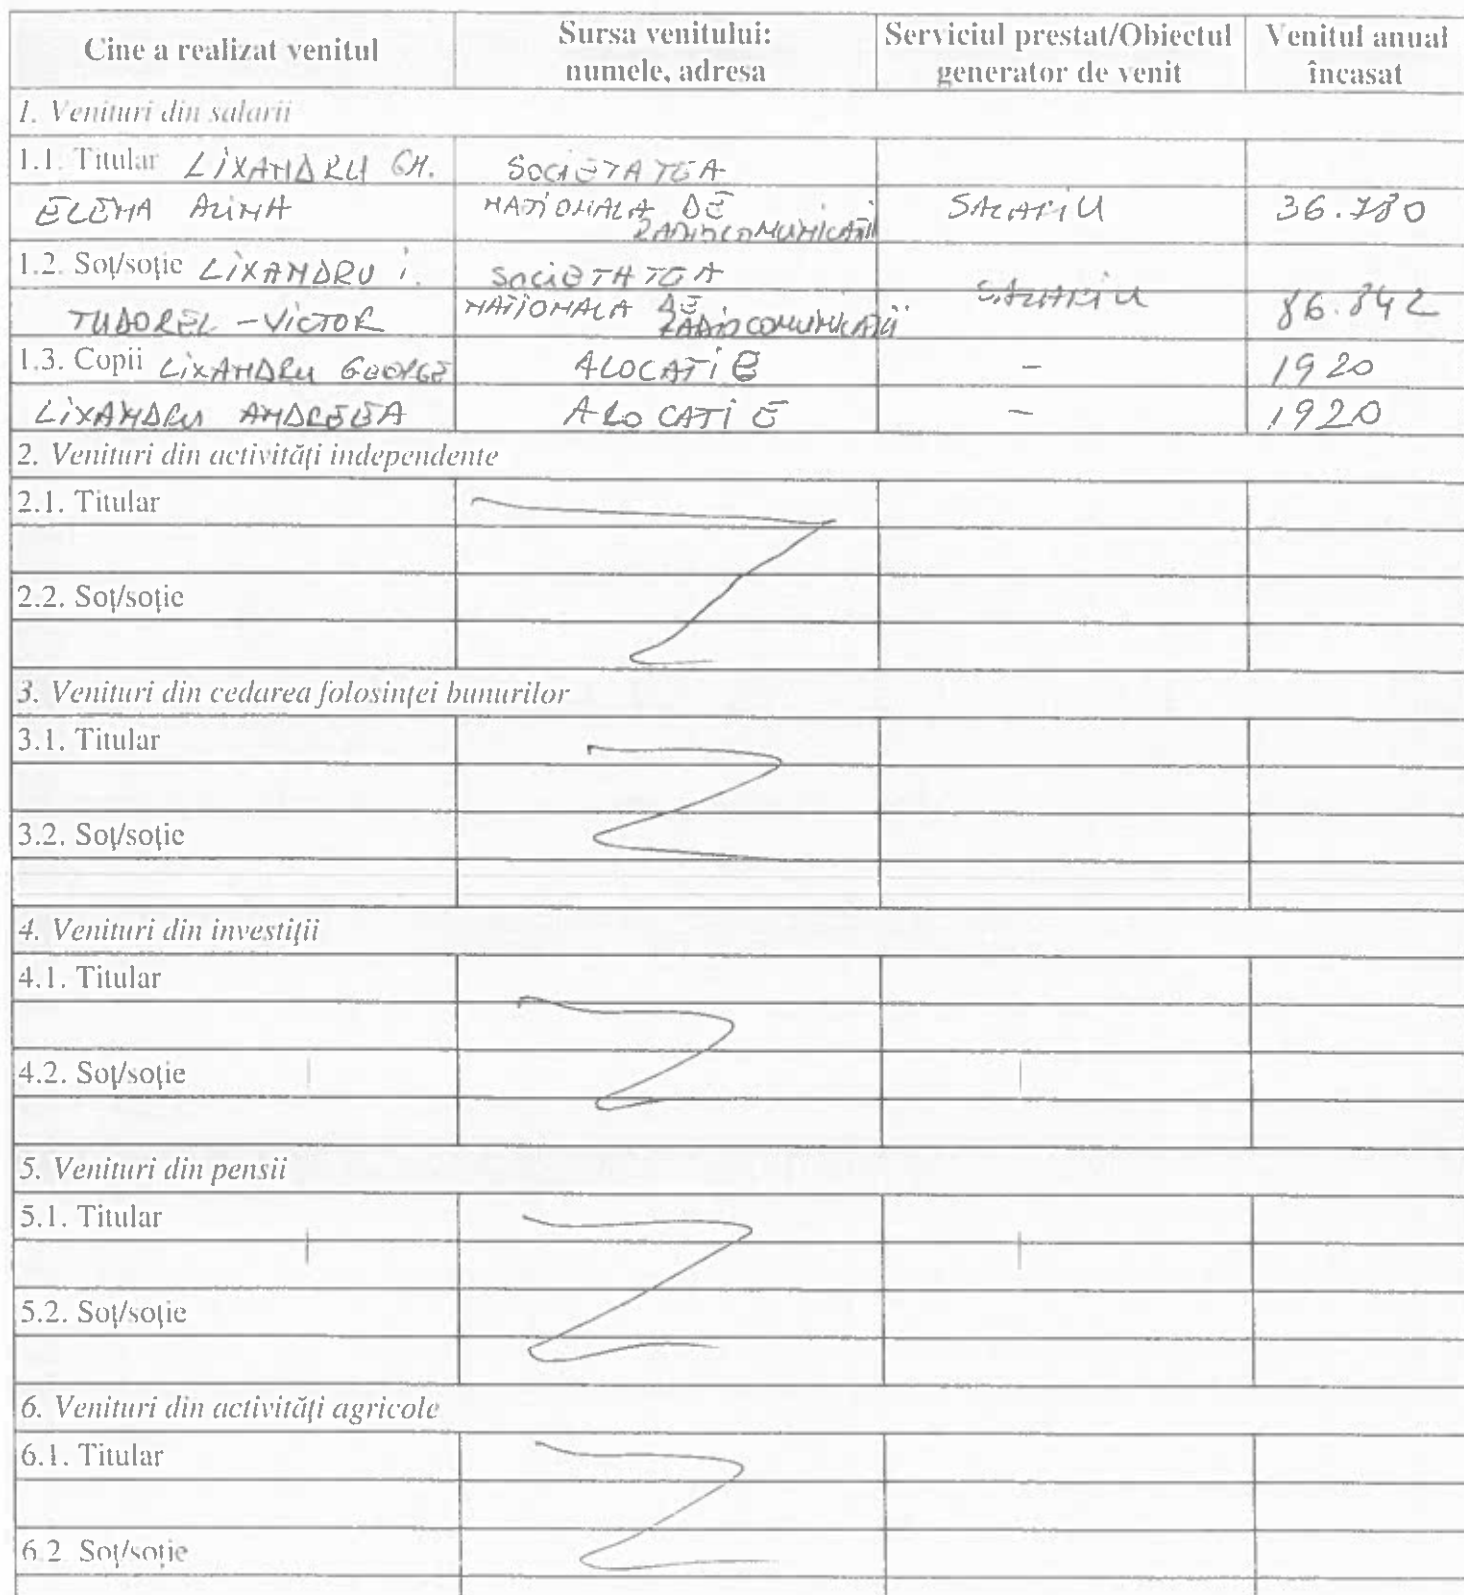 Cine a realizat venitul
Sursa venitului:
numele, adresa
Serviciul prestat/Obiectul
generator de venit
Venitul anual
încasat
1. Venituri din salarii
1.1. Titular LIXANDRU GH.
ELENA ALINA
SOCIETATEA
NATIONALA DE
RADIOCOMUNICATII
SALARIU
1.2. Soț/soție LIXANDRU I.
TUDOREL - VICTOR
SOCIETATEA
NATIONALA DE
RADIOCOMUNICATII
SALARIU
86.842
1.3. Copii LIXANDRU GEORGE
ALOCATIE
-
1920
LIXANDRU ANDREEA
ALOCATIE
-
1920
2. Venituri din activități independente
2.1. Titular
2.2. Soț/soție
3. Venituri din cedarea folosinței bunurilor
3.1. Titular
3.2. Soț/soție
4. Venituri din investiții
4.1. Titular
4.2. Soț/soție
5. Venituri din pensii
5.1. Titular
5.2. Soț/soție
6. Venituri din activități agricole
6.1. Titular
6.2. Soț/soție